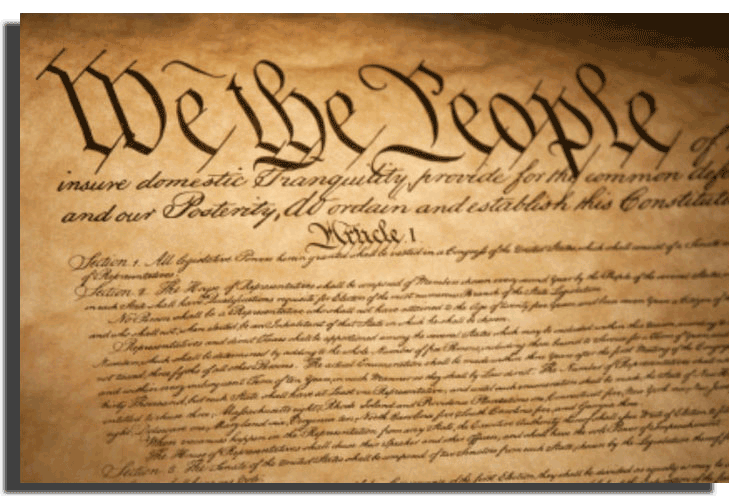 We the People of
insure domestic Tranquility, provide for the common def
and our Posterity, do ordain and establish this Constituti
Article. I.
Section. 1. All legislative Powers herein granted shall be vested in a Congress of the United States, which shall consist of a Senate
of Representatives.
Section. 2. The House of Representatives shall be composed of Members chosen every second Year by the People of the several States,
in each State shall have Qualifications requisite for Electors of the most numerous Branch of the State Legislature.
No Person shall be a Representative who shall not have attained to the Age of twenty five Years, and been seven Years a Citizen of
and who shall not, when elected, be an Inhabitant of that State in which he shall be chosen.
Representatives and direct Taxes shall be apportioned among the several States which may be included within this Union, according to
Numbers, which shall be determined by adding to the whole Number of free Persons, including those bound to Service for a Term of Years
not taxed, three fifths of all other Persons. The actual Enumeration shall be made within three Years after the first Meeting of the Congress
and within every subsequent Term of ten Years, in such Manner as they shall by Law direct. The Number of Representatives shall
thirty Thousand, but each State shall have at Least one Representative; and until such enumeration shall be made, the State of New
entitled to chuse three, Massachusetts eight, Rhode Island and Providence Plantations one, Connecticut five, New York six, New
eight, Delaware one, Maryland six, Virginia ten, North Carolina five, South Carolina five, and Georgia three.
When vacancies happen in the Representation from any State, the Executive Authority thereof shall issue Writs of Election to
The House of Representatives shall chuse their Speaker and other Officers; and shall have the sole Power of Impeachment.
Section. 3. The Senate of the United States shall be composed of two Senators from each State, chosen by the Legislature thereof,
of the first Election, they shall be divided as equally as may be